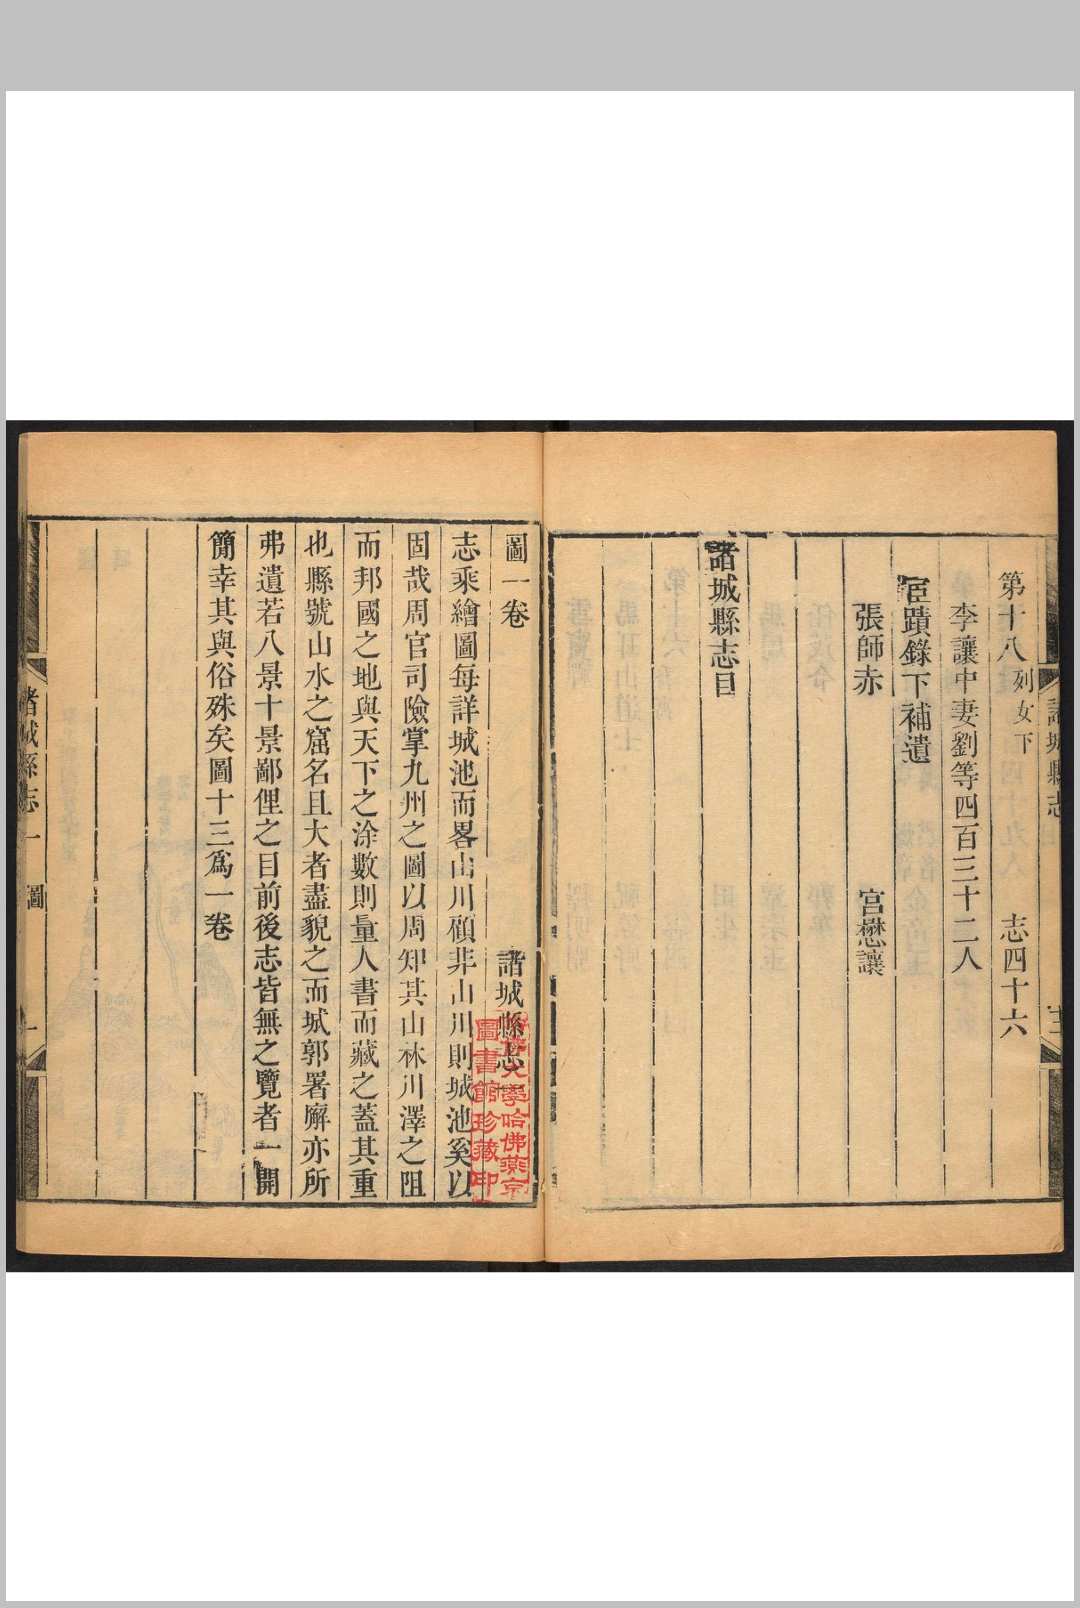 諸城縣志
第十八 列女下 志四十六
李讓中妻劉等四百三十二人
宦蹟錄下補遺
張師赤 宫懋讓
諸城縣志目
圖一卷 諸城縣志一
志乘繪圖每詳城池而畧山川顧非山川則城池奚以
固哉周官司險掌九州之圖以周知其山林川澤之阻
而邦國之地與天下之涂數則量人書而藏之蓋其重
也縣號山水之窟名且大者盡貌之而城郭署廨亦所
弗遺若八景十景鄙俚之目前後志皆無之覽者一開
簡幸其與俗殊矣圖十三爲一卷
諸城縣志一 圖 一
大學哈佛燕京
圖書館珍藏印